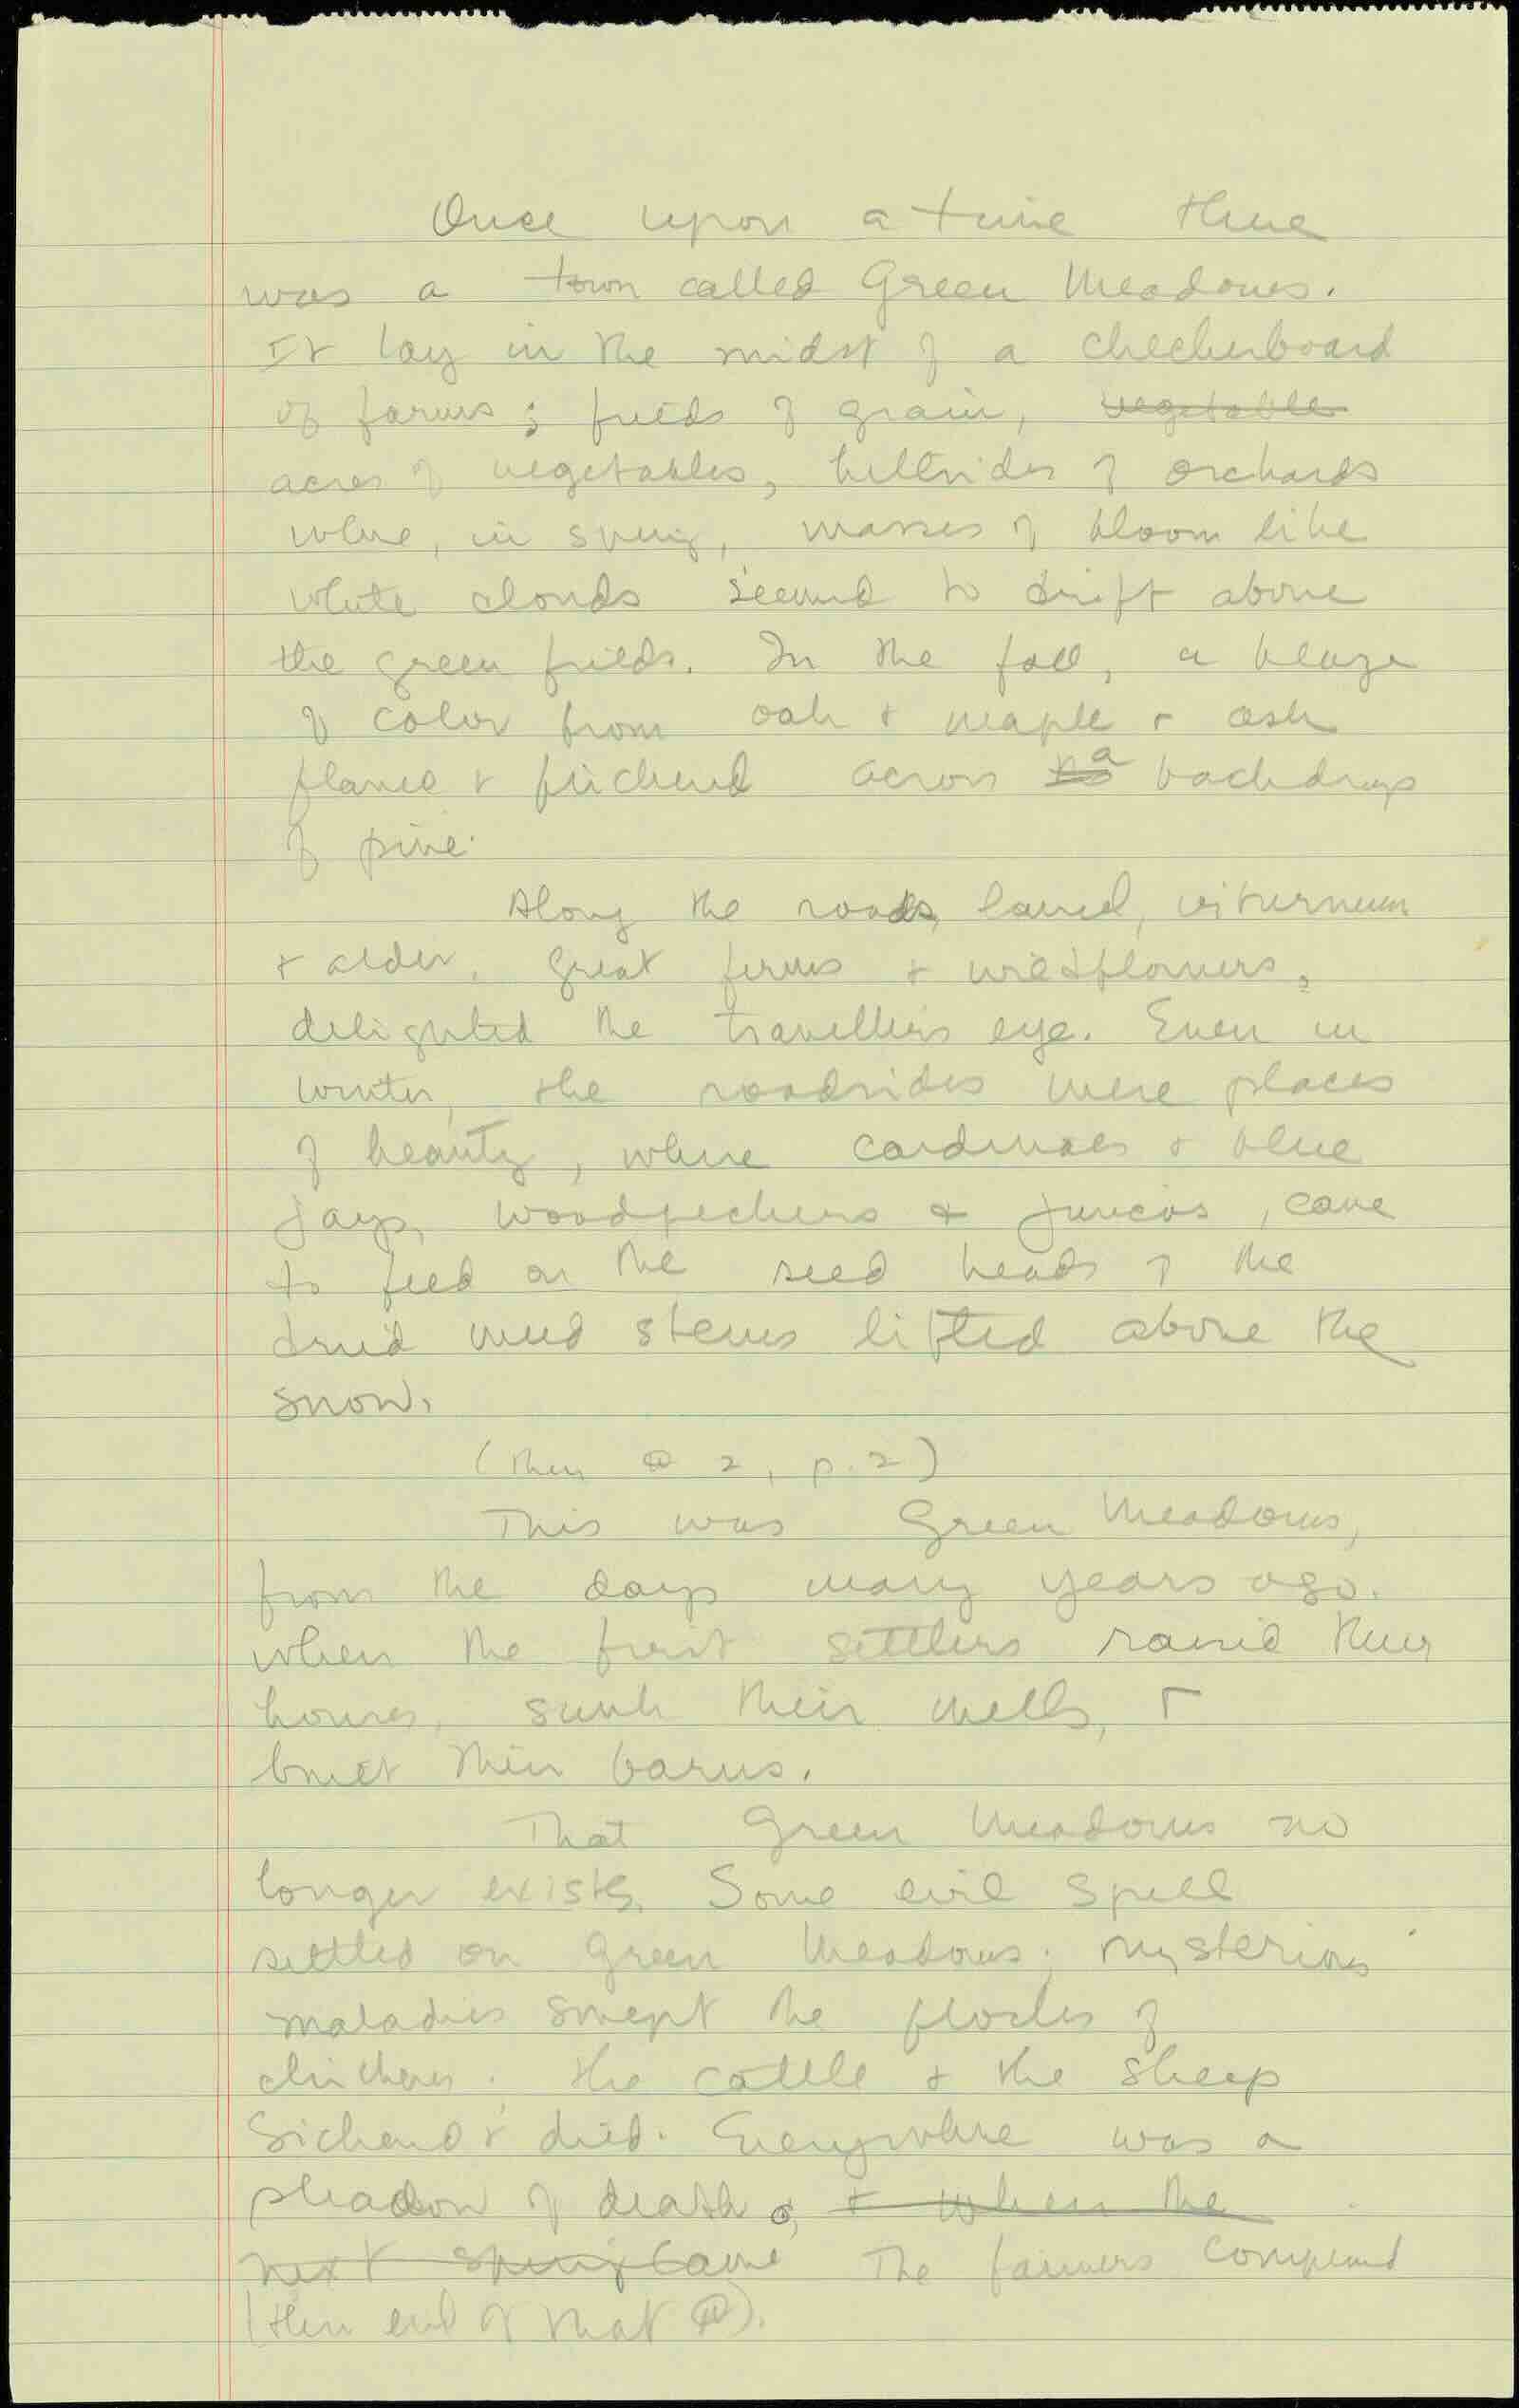 Once upon a time there
was a town called Green Meadows.
It lay in the midst of a checkerboard
of farms; fields of grain, vegetable
acres of vegetables, hillsides of orchards
where, in spring, masses of bloom like
white clouds seemed to drift above
the green fields. In the fall, a blaze
of color from oak & maple & ash
flamed & flickered across a backdrop
of pine.
Along the roads, laurel, viburnum
& alder, great ferns & wildflowers,
delighted the traveller's eye. Even in
winter, the roadsides were places
of beauty, where cardinals & blue
jays, woodpeckers & juncos, came
to feed on the seed heads of the
dried weed stems lifted above the
snow.
(then 2, p. 2)
This was Green Meadows,
from the days many years ago.
when the first settlers raised their
houses, sunk their wells, &
built their barns.
That Green Meadows no
longer exists. Some evil spell
settled on Green Meadows; mysterious
maladies swept the flocks of
chickens; the cattle & the sheep
sickened & died. Everywhere was a
shadow of death. & when the
next spring came The farmers
(then end of that).